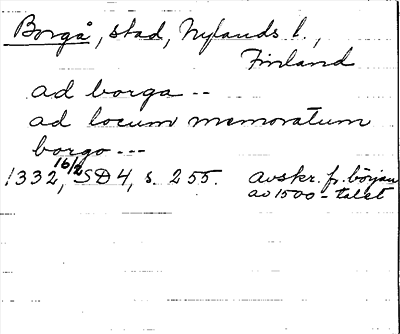 Borgå, stad, Nylands l.,
Finland
ad borga --
ad locum memoratum
borgo ---
1332 16/2, SD4, s. 255. avskr. fr. början
av 1500-talet